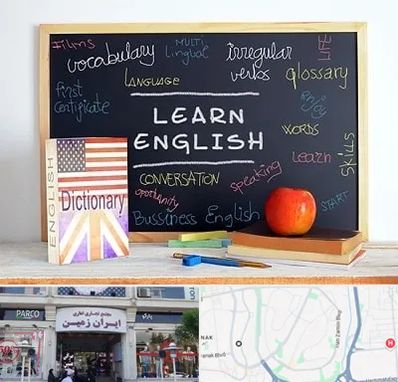 Films
vocabulary
MULTI
lingual
irregular
verbs
LIFE
glossary
LANGUAGE
first
Certificate
LEARN
ENGLISH
WORDS
Learn
Skills
CONVERSATION
speaking
opportunity
Bussiness English
START
ENGLISH
Dictionary
PARCO
مجتمع تجاری اداری
ایران زمین
H